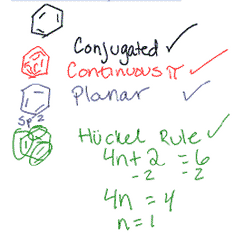 Conjugated ✓
Continuous π ✓
Planar ✓
sp2
Hückel Rule ✓
4n+2 = 6
-2 = 2
4n = 4
n = 1